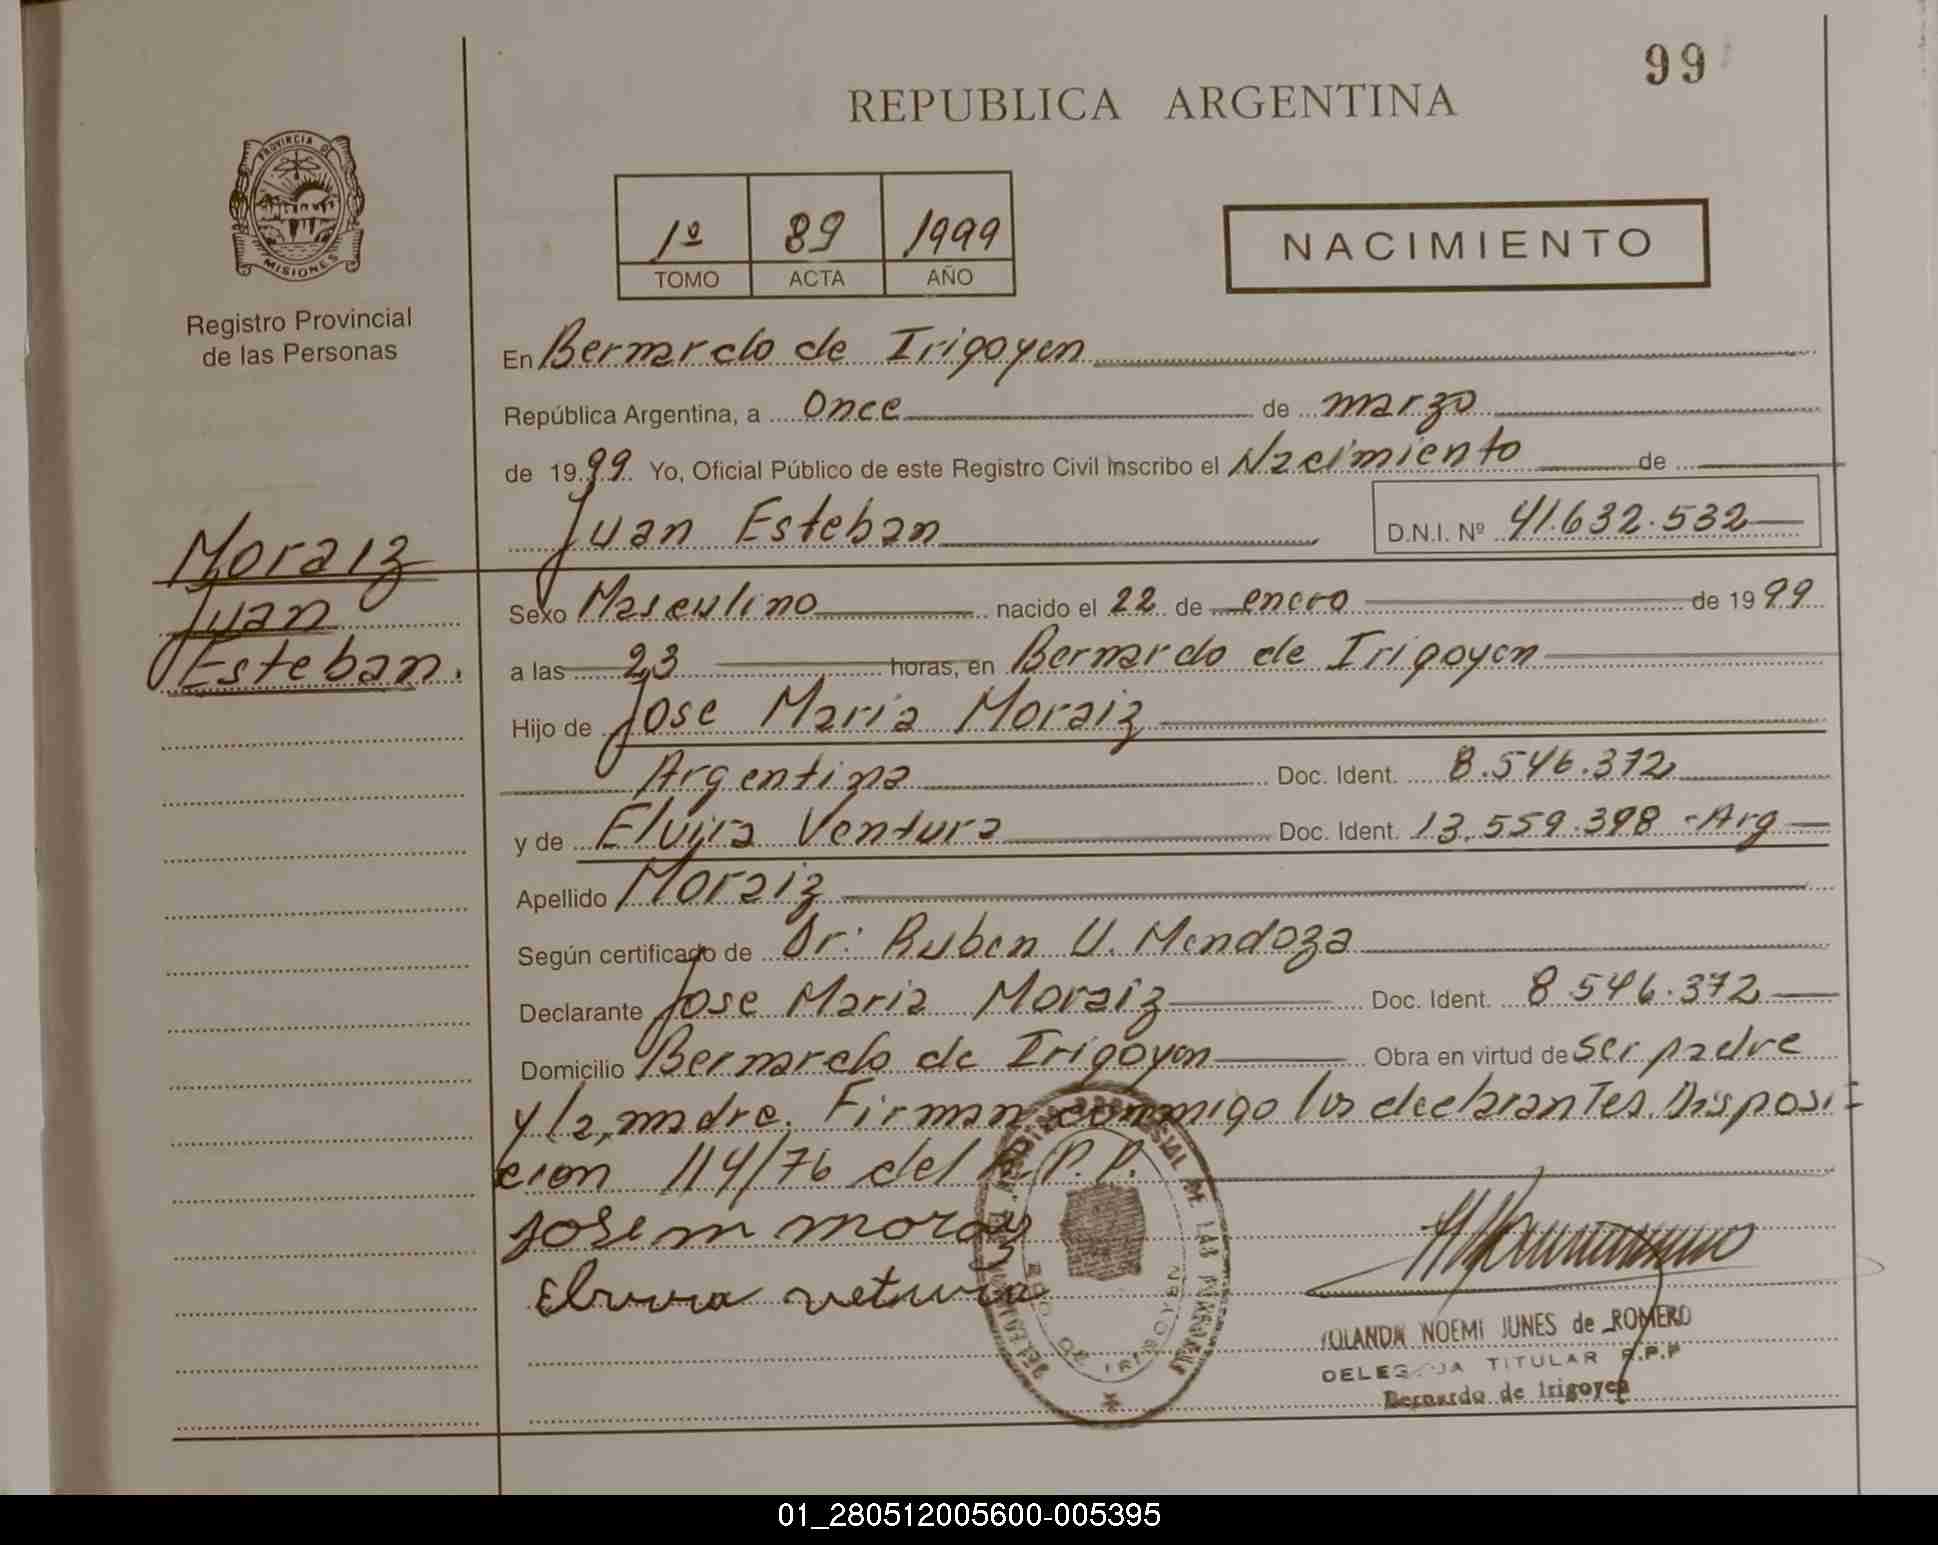 99
REPUBLICA ARGENTINA
PROVINCIA DE
MISIONES
Registro Provincial
de las Personas
1º 89 1999
TOMO ACTA AÑO
NACIMIENTO
En Bernardo de Irigoyen
República Argentina, a Once de marzo
de 1999 Yo, Oficial Público de este Registro Civil Inscribo el Nacimiento de
Juan Esteban D.N.I. Nº 41.632.532
Moraiz
Juan
Esteban.
Sexo Masculino nacido el 22 de enero de 1999
a las 23 horas, en Bernardo de Irigoyen
Hijo de Jose Maria Moraiz
Argentina Doc. Ident. 8.546.372
y de Elvira Ventura Doc. Ident. 13.559.398 - Arg
Apellido Moraiz
Según certificado de Dr: Ruben U. Mendoza
Declarante Jose Maria Moraiz Doc. Ident. 8.546.372
Domicilio Bernardo de Irigoyen Obra en virtud de ser padre
y la madre. Firman conmigo los declarantes. Disposi
cion 114/76 del R.P.P.
Jose m moraz
Elvira
YOLANDA NOEMI JUNES de ROMERO
DELEGADA TITULAR R.P.P
Bernardo de Irigoyen
01_280512005600-005395